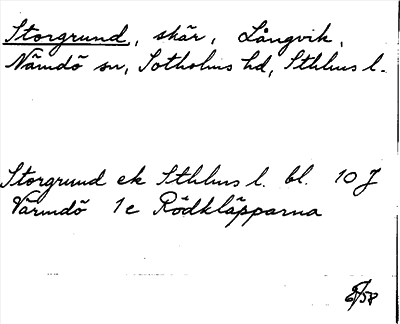 Storgrund, skär, Långvik,
Nämdö sn, Sotholms hd, Sthlms l.
Storgrund ek Sthlms l. bl. 10 J
Värmdö 1c Rödkläpparna